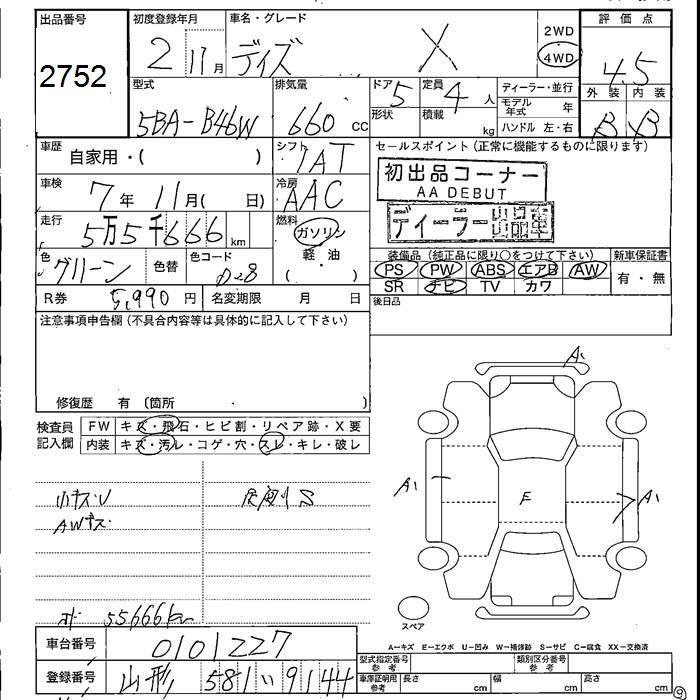 出品番号 初度登録年月 車名・グレード 2WD 評価点
2752 2 11月 デイズ X 4WD 4.5
型式 排気量 ドア 5 定員 4人 ディーラー・並行 外装 内装
5BA-B46W 660cc 形状 積載 kg モデル年式 年 B B
ハンドル 左・右
車歴 自家用・( ) シフト IAT セールスポイント(正常に機能するものに限ります)
車検 7年 11月( 日) 冷房 AAC 初出品コーナー
AA DEBUT
走行 5万5千666km 燃料 ガソリン ディーラー出品車
軽・油
色 グリーン 色替 色コード ( ) 装備品(純正品に限り○をつけて下さい) 新車保証書
PS PW ABS エアB AW 有・無
R券 5,990円 名変期限 月 日 SR ナビ TV カワ
後日品
注意事項申告欄(不具合内容等は具体的に記入して下さい)
修復歴 有〔箇所 〕
検査員 FW キズ・飛石・ヒビ割・リペア跡・X要
記入欄 内装 キズ・汚レ・コゲ・穴・スレ・キレ・破レ
A1
小キズU
AWキズ
A1 E A1
55666km
スペア
A―キズ E―エクボ U―凹み W―補修跡 S―サビ C―腐食 XX―交換済
車台番号 0101227
型式指定番号 参考 類別区分番号 参考
登録番号 山形 581 い 9144
車庫証明用 参考 長さ cm 幅 cm 高さ cm